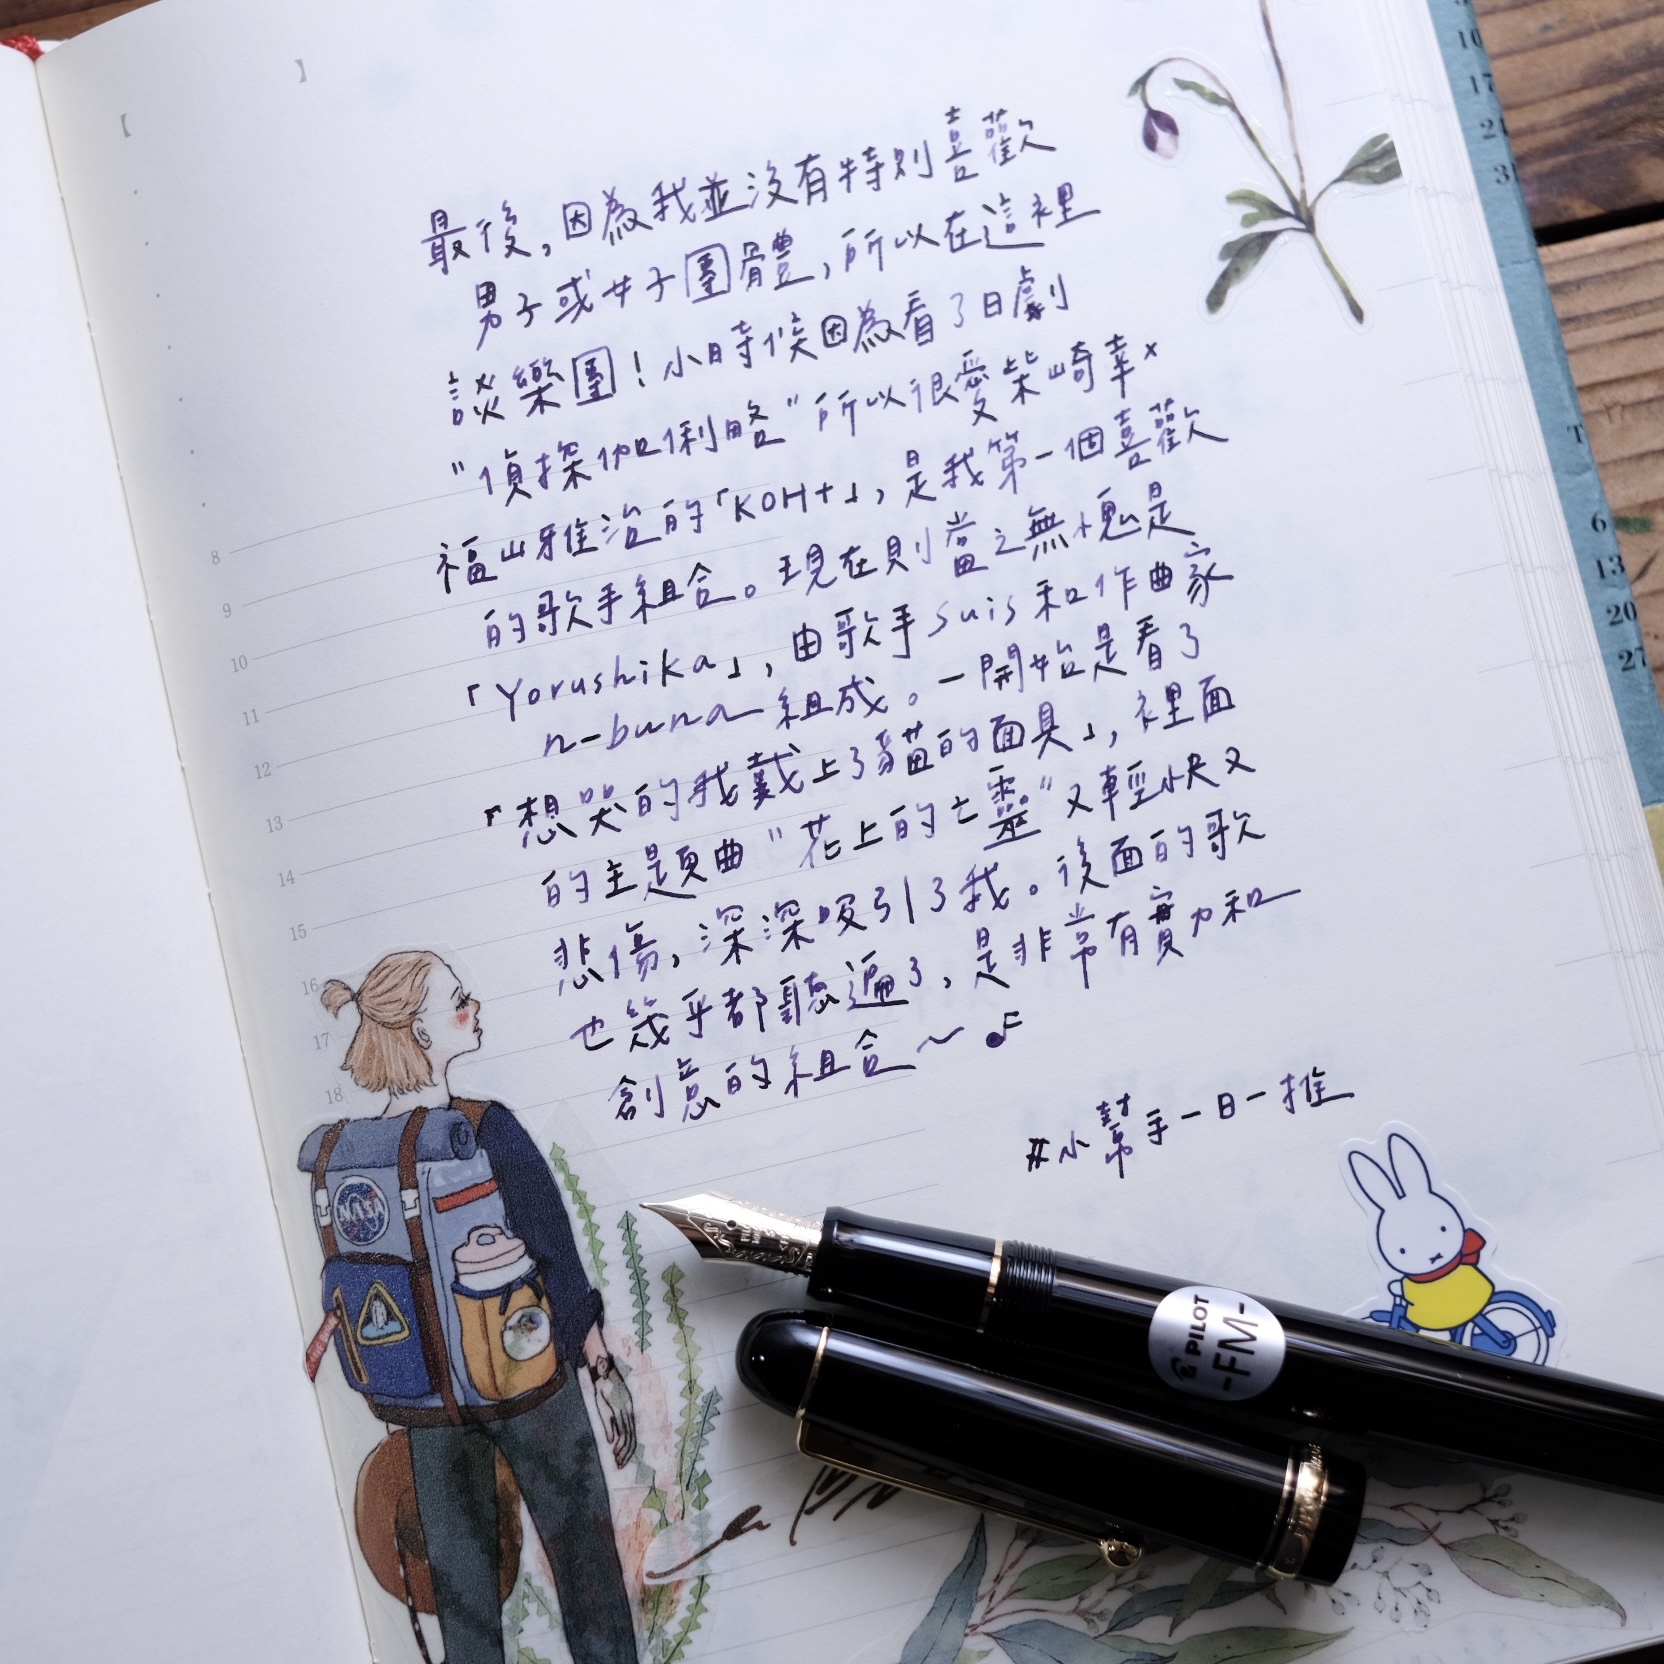 最後,因為我並沒有特別喜歡
男子或女子團體,所以在這裡
談樂團!小時候因為看了日劇
"偵探伽俐略"所以很愛柴崎幸x
福山雅治的「KOH+」,是我第一個喜歡
的歌手組合。現在則當之無愧是
「Yorushika」,由歌手suis和作曲家
n-buna組成。一開始是看了
「想哭的我戴上了貓的面具」,裡面
的主題曲"花上的亡靈"又輕快又
悲傷,深深吸引了我。後面的歌
也幾乎都聽遍了,是非常有實力和
創意的組合~♪
#小幫手一日一推
8
9
10
11
12
13
14
15
16
17
18
NASA
PILOT
-FM-
10
17
24
31
6
13
20
27